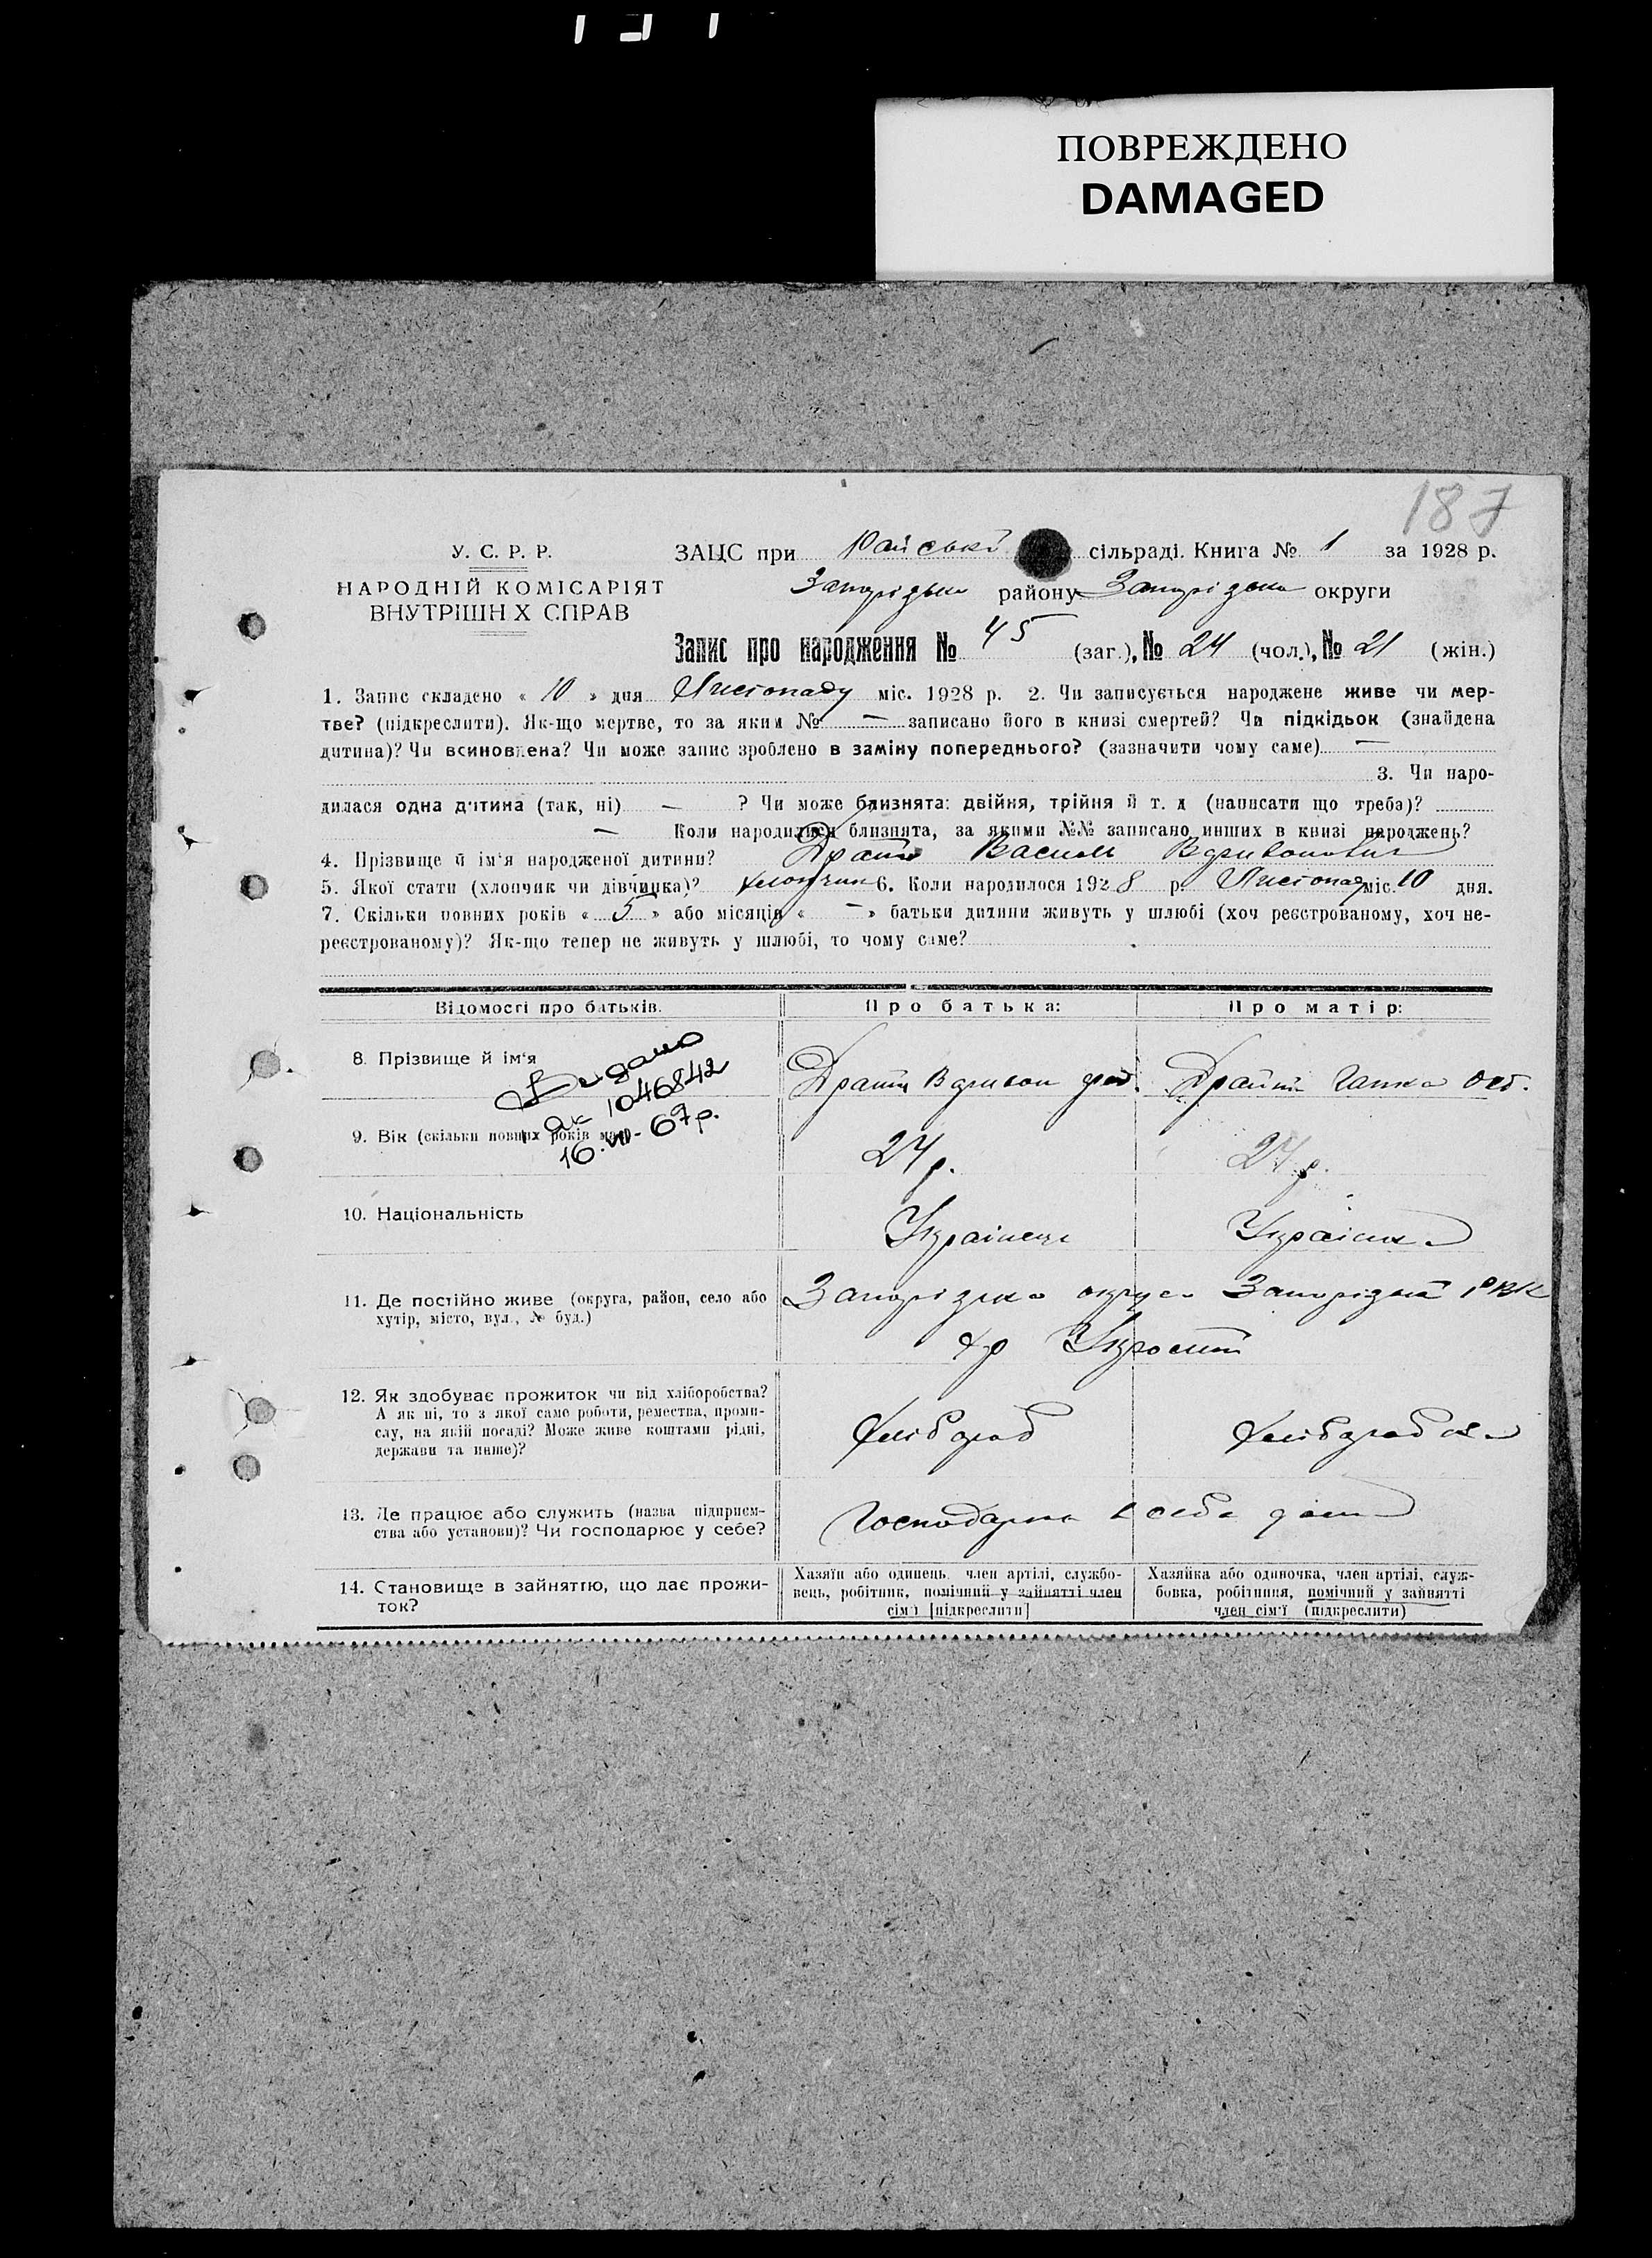 ПОВРЕЖДЕНО
DAMAGED
187
У. С. Р. Р.
НАРОДНІЙ КОМІСАРІЯТ
ВНУТРІШН Х СПРАВ
ЗАЦС при сільраді. Книга № 1 за 1928 р.
району округи
Запис про народження № 45 (заг.), № 24 (чол.), № 21 (жін.)
1. Запис складено « 10 » дня Листопаду міс. 1928 р. 2. Чи записується народжене живе чи мер-
тве? (підкреслити). Як-що мертве, то за яким № — записано його в книзі смертей? Чи підкідьок (знайдена
дитина)? Чи всиновлена? Чи може запис зроблено в заміну попереднього? (зазначити чому саме) —
3. Чи наро-
дилася одна дитина (так, ні) — ? Чи може близнята: двійня, трійня й т. д (написати що треба)?
— Коли народилися близнята, за якими №№ записано инших в книзі народжень?
4. Прізвище й ім'я народженої дитини? Василь
5. Якої стати (хлопчик чи дівчинка)? хлопчик 6. Коли народилося 1928 р. Листопад міс. 10 дня.
7. Скільки повних років « 5 » або місяців « — » батьки дитини живуть у шлюбі (хоч реєстрованому, хоч не-
реєстрованому)? Як-що тепер не живуть у шлюбі, то чому саме?
Відомості про батьків.
Про батька:
Про матір:
8. Прізвище й ім'я
Видано
1046842
16. VII - 67 р.
9. Вік (скільки повних років має)
24 р.
24 р.
10. Національність
Українець
Українка
11. Де постійно живе (округа, район, село або
хутір, місто, вул., № буд.)
Запорізька округа Запорізький РВК
12. Як здобуває прожиток чи від хліборобства?
А як ні, то з якої саме роботи, ремества, проми-
слу, на якій посаді? Може живе коштами рідні,
держави та инше)?
Хлібороб
Хлібороbка
13. Де працює або служить (назва підприєм-
ства або установи)? Чи господарює у себе?
14. Становище в зайняттю, що дає прожи-
ток?
Хазяїн або одинець, член артілі, службо-
вець, робітник, помічний у зайнятті член
сім'ї [підкреслити]
Хазяйка або одиночка, член артілі, служ-
бовка, робітниця, помічний у зайнятті
член сім'ї (підкреслити)